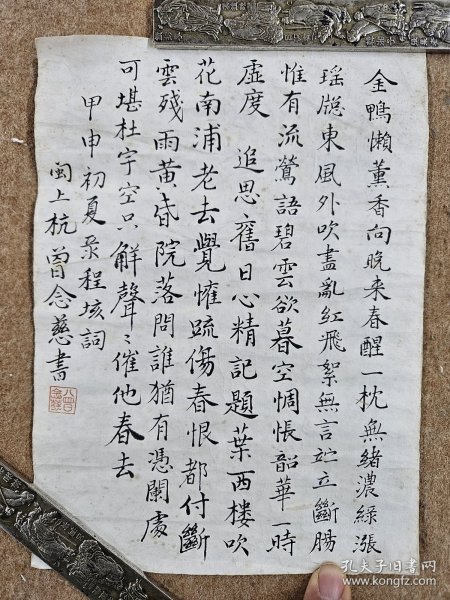 金鴨懶薰香向晚来春醒一枕無緒濃綠漲
瑶牎東風外吹盡亂紅飛絮無言竚立斷腸
惟有流鶯語碧雲欲暮空惆悵韶華一時
虛度　追思舊日心精記題葉西樓吹
花南浦老去覺懽疏傷春恨都付斷
雲殘雨黃昏院落問誰猶有憑闌處
可堪杜宇空只解聲〻催他春去
甲申初夏录程垓詞
閩上杭曾念慈書
孔夫子旧书网